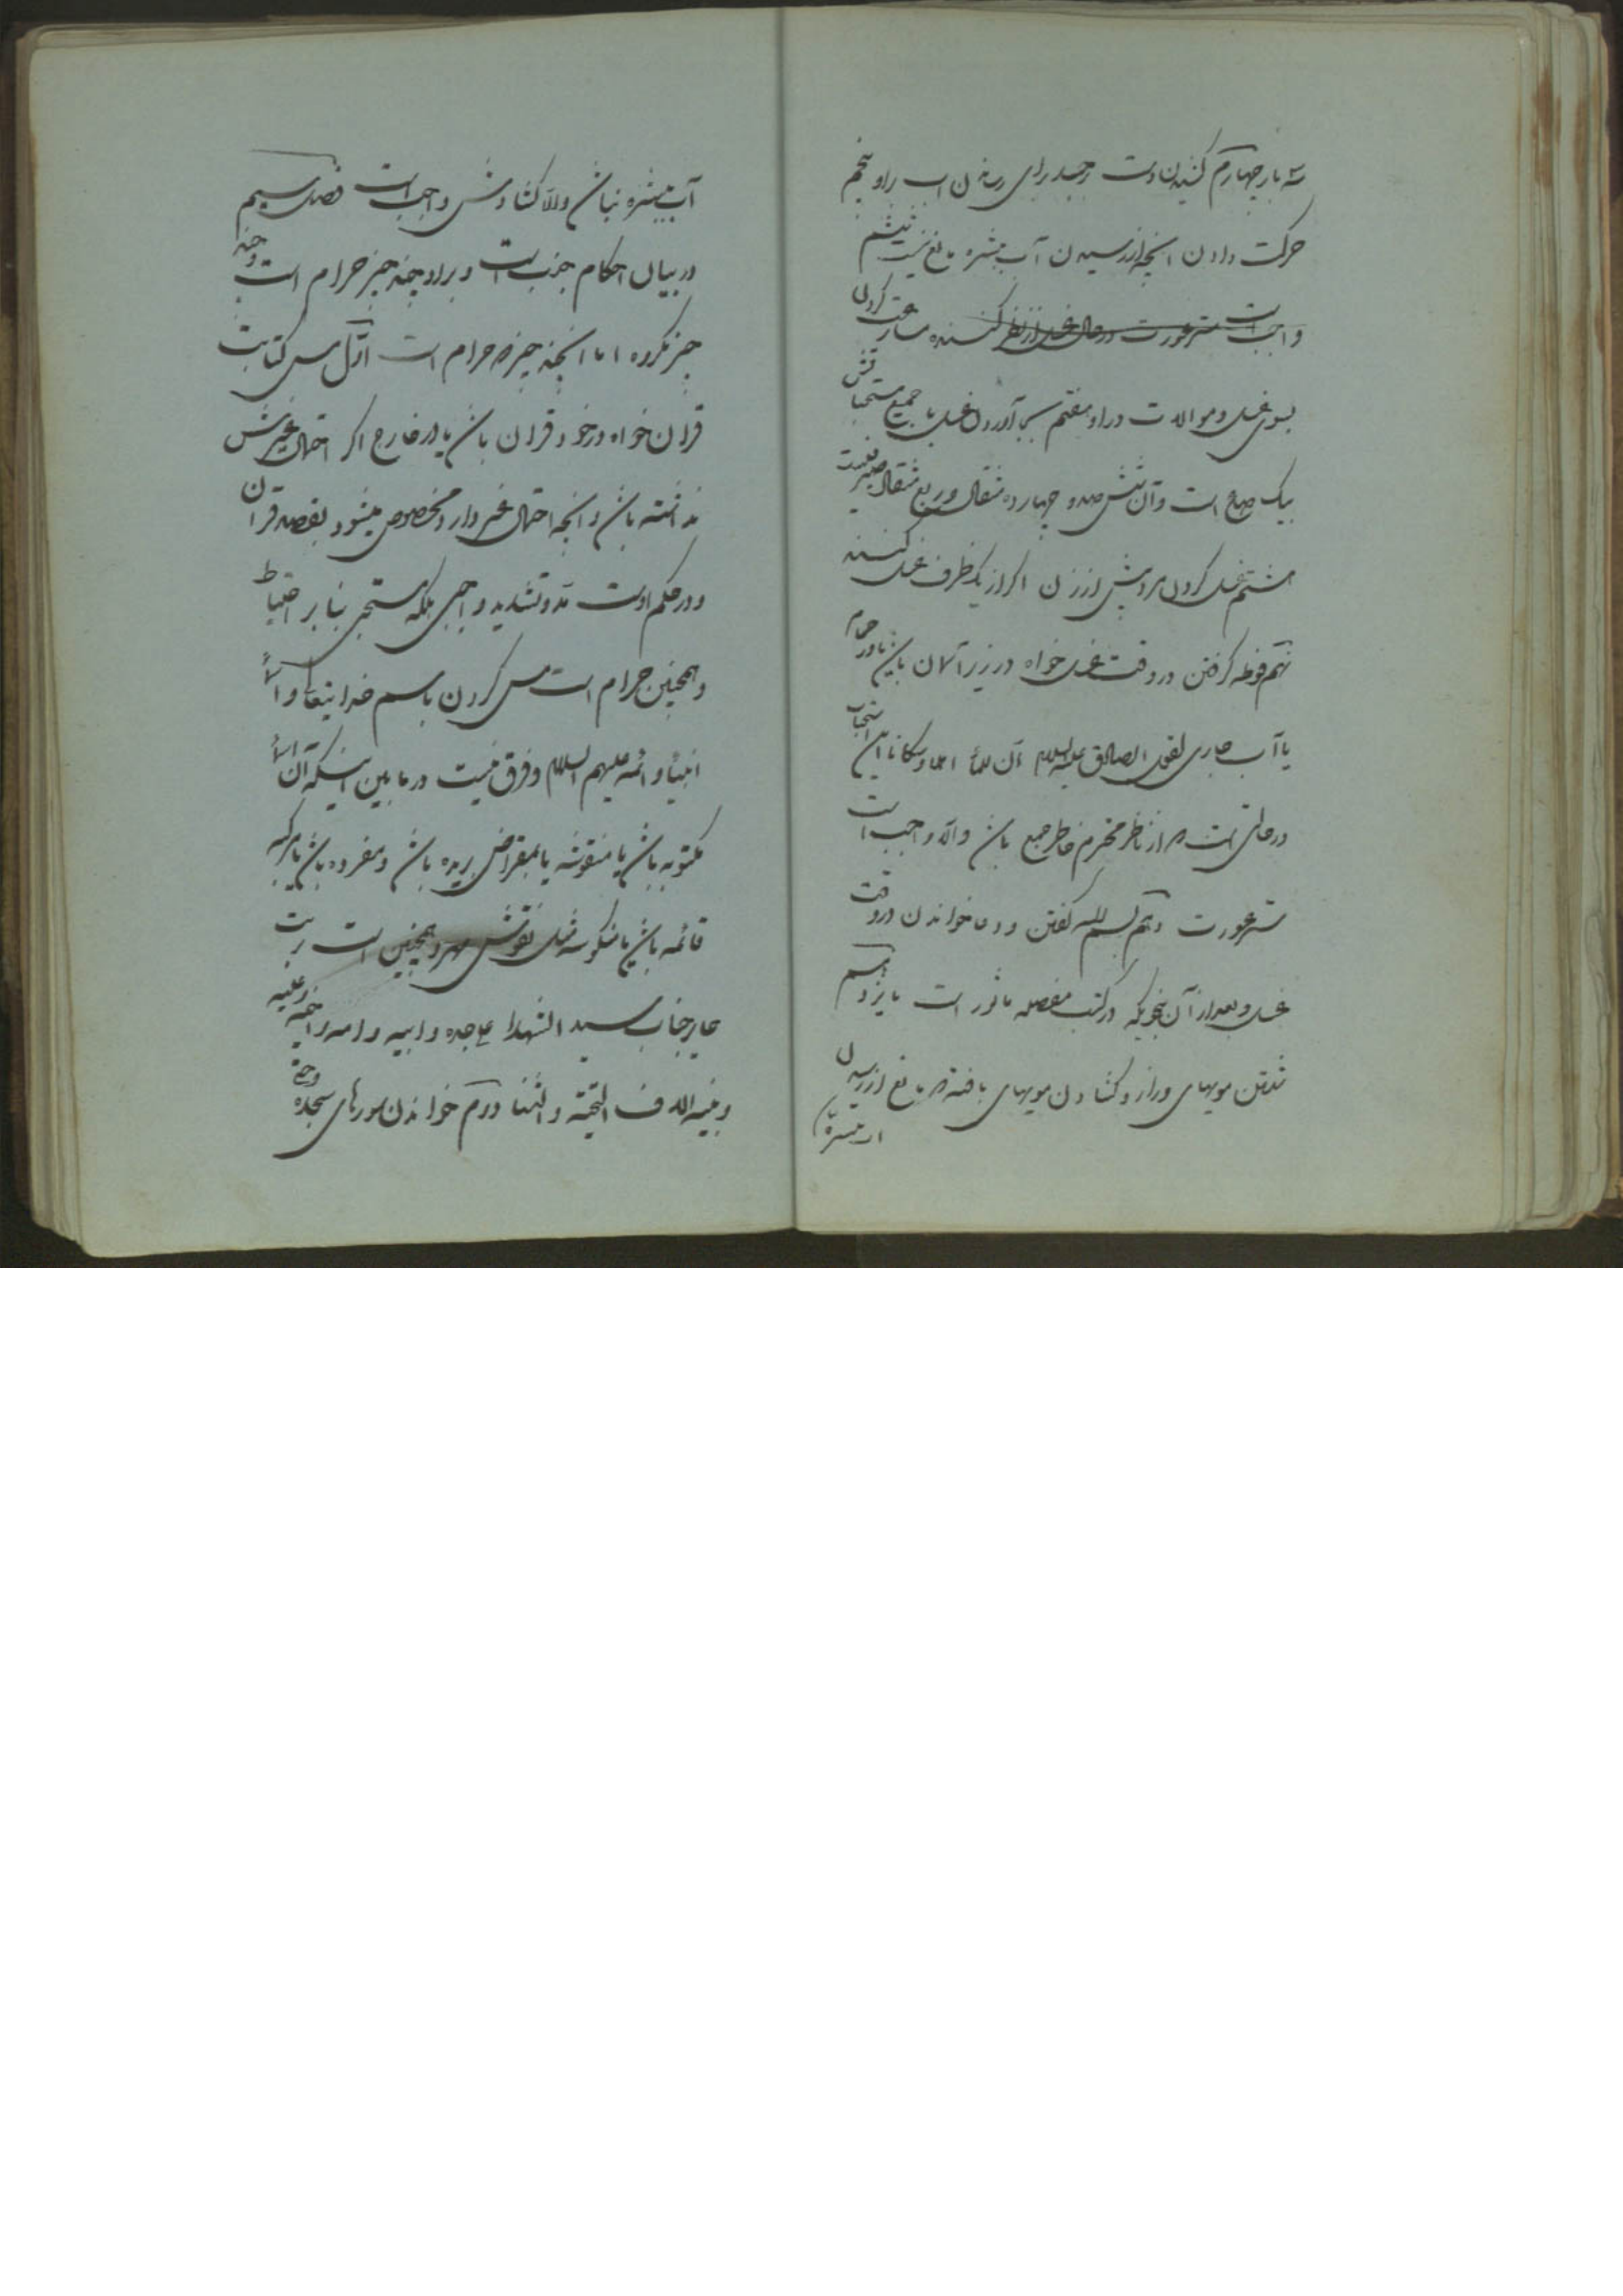 سه بار چهارم کشیدن دست بر جسد برای رساندن آب را و پنجم
حرکت دادن آنچه از رسیدن آب ببشره مانع نیست ششم
واجب است ستر عورت در حال غسل از نظر کننده مسارعت کردن
بسوی غسل و موالات در او هفتم بجا آوردن غسل با جمیع مستحباتش
بیک صاع است و آن ششصد و چهارده مثقال و ربع مثقال صیرفیست
هشتم غسل کردن مرد پیش از زن اگر از یک ظرف غسل کنند
نهم فوطه گرفتن در وقت غسل خواه در زیر آسمان باشد یا در حمام
یا آب جاری لقول الصادق علیه السلام ان للماء اهلا و سکانا این استحباب
در حالتی است که از ناظر محترم خاطر جمع باشد والا واجب است
ستر عورت دهم بسم الله گفتن و دعا خواندن در وقت
غسل و بعد از آن بنحویکه در کتب مفصله مأثور است یازدهم
شستن مویهای دراز و گشادن مویهای بافته که مانع از رسیدن
آب ببشره
آب ببشره نباشد والا گشادنش واجب است فصل سیم
در بیان احکام جنب است و بر او چند چیز حرام است و چند
چیز مکروه اما آنچند چیز که حرام است اول مس کتابت
قرآن خواه در خود قرآن باشد یا در خارج اگر احتمال غیرش
نداشته باشد و آنچه احتمال غیر دارد مخصوص میشود بقصد قرآن
و در حکم اوست مد و تشدید واجبی بلکه مستحبی بنا بر احتیاط
و همچنین حرام است مس کردن باسم خدایتعالی و اسماء
انبیاء و ائمه علیهم السلام و فرق نیست در ما بین اینکه آن اسماء
مکتوبه باشد یا منقوشه یا بمقراض بریده باشد و مفرده باشد یا مرکبه
قائمه باشد یا منکوسه مثل نقوش مهر و همچنین است تربت
حایر جناب سید الشهدا ع جده و ابیه و امه و اخیه و علیه
و بنیه الاف التحیة و الثنا دوم خواندن سورهای سجده